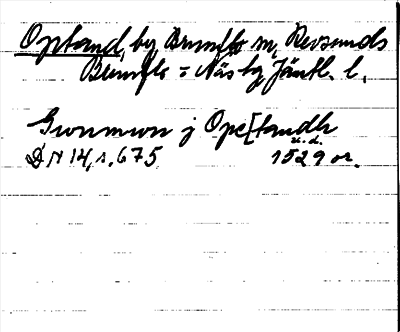 Opland, by, Brunflo sn, Revsunds
Brunflo o Näs tg, Jämtl. l.
Gwnnwor j Ope[landh
u.d.
DN 14, s. 675 1529 or.